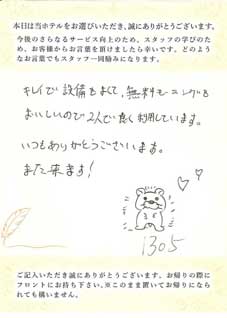 本日は当ホテルをお選びいただき、誠にありがとうございます。
今後のさらなるサービス向上のため、スタッフの学びのた
め、お客様からお言葉を頂けましたら幸いです。どのよう
なお言葉でもスタッフ一同励みになります。
キレイで設備もよくて、無料モーニングも
おいしいので2人で良く利用しています。
いつもありがとうございます。
また来ます！
1305
ご記入いただき誠にありがとうございます。お帰りの際に
フロントにお持ち下さい。※このまま置いてお帰りになら
れても構いません。